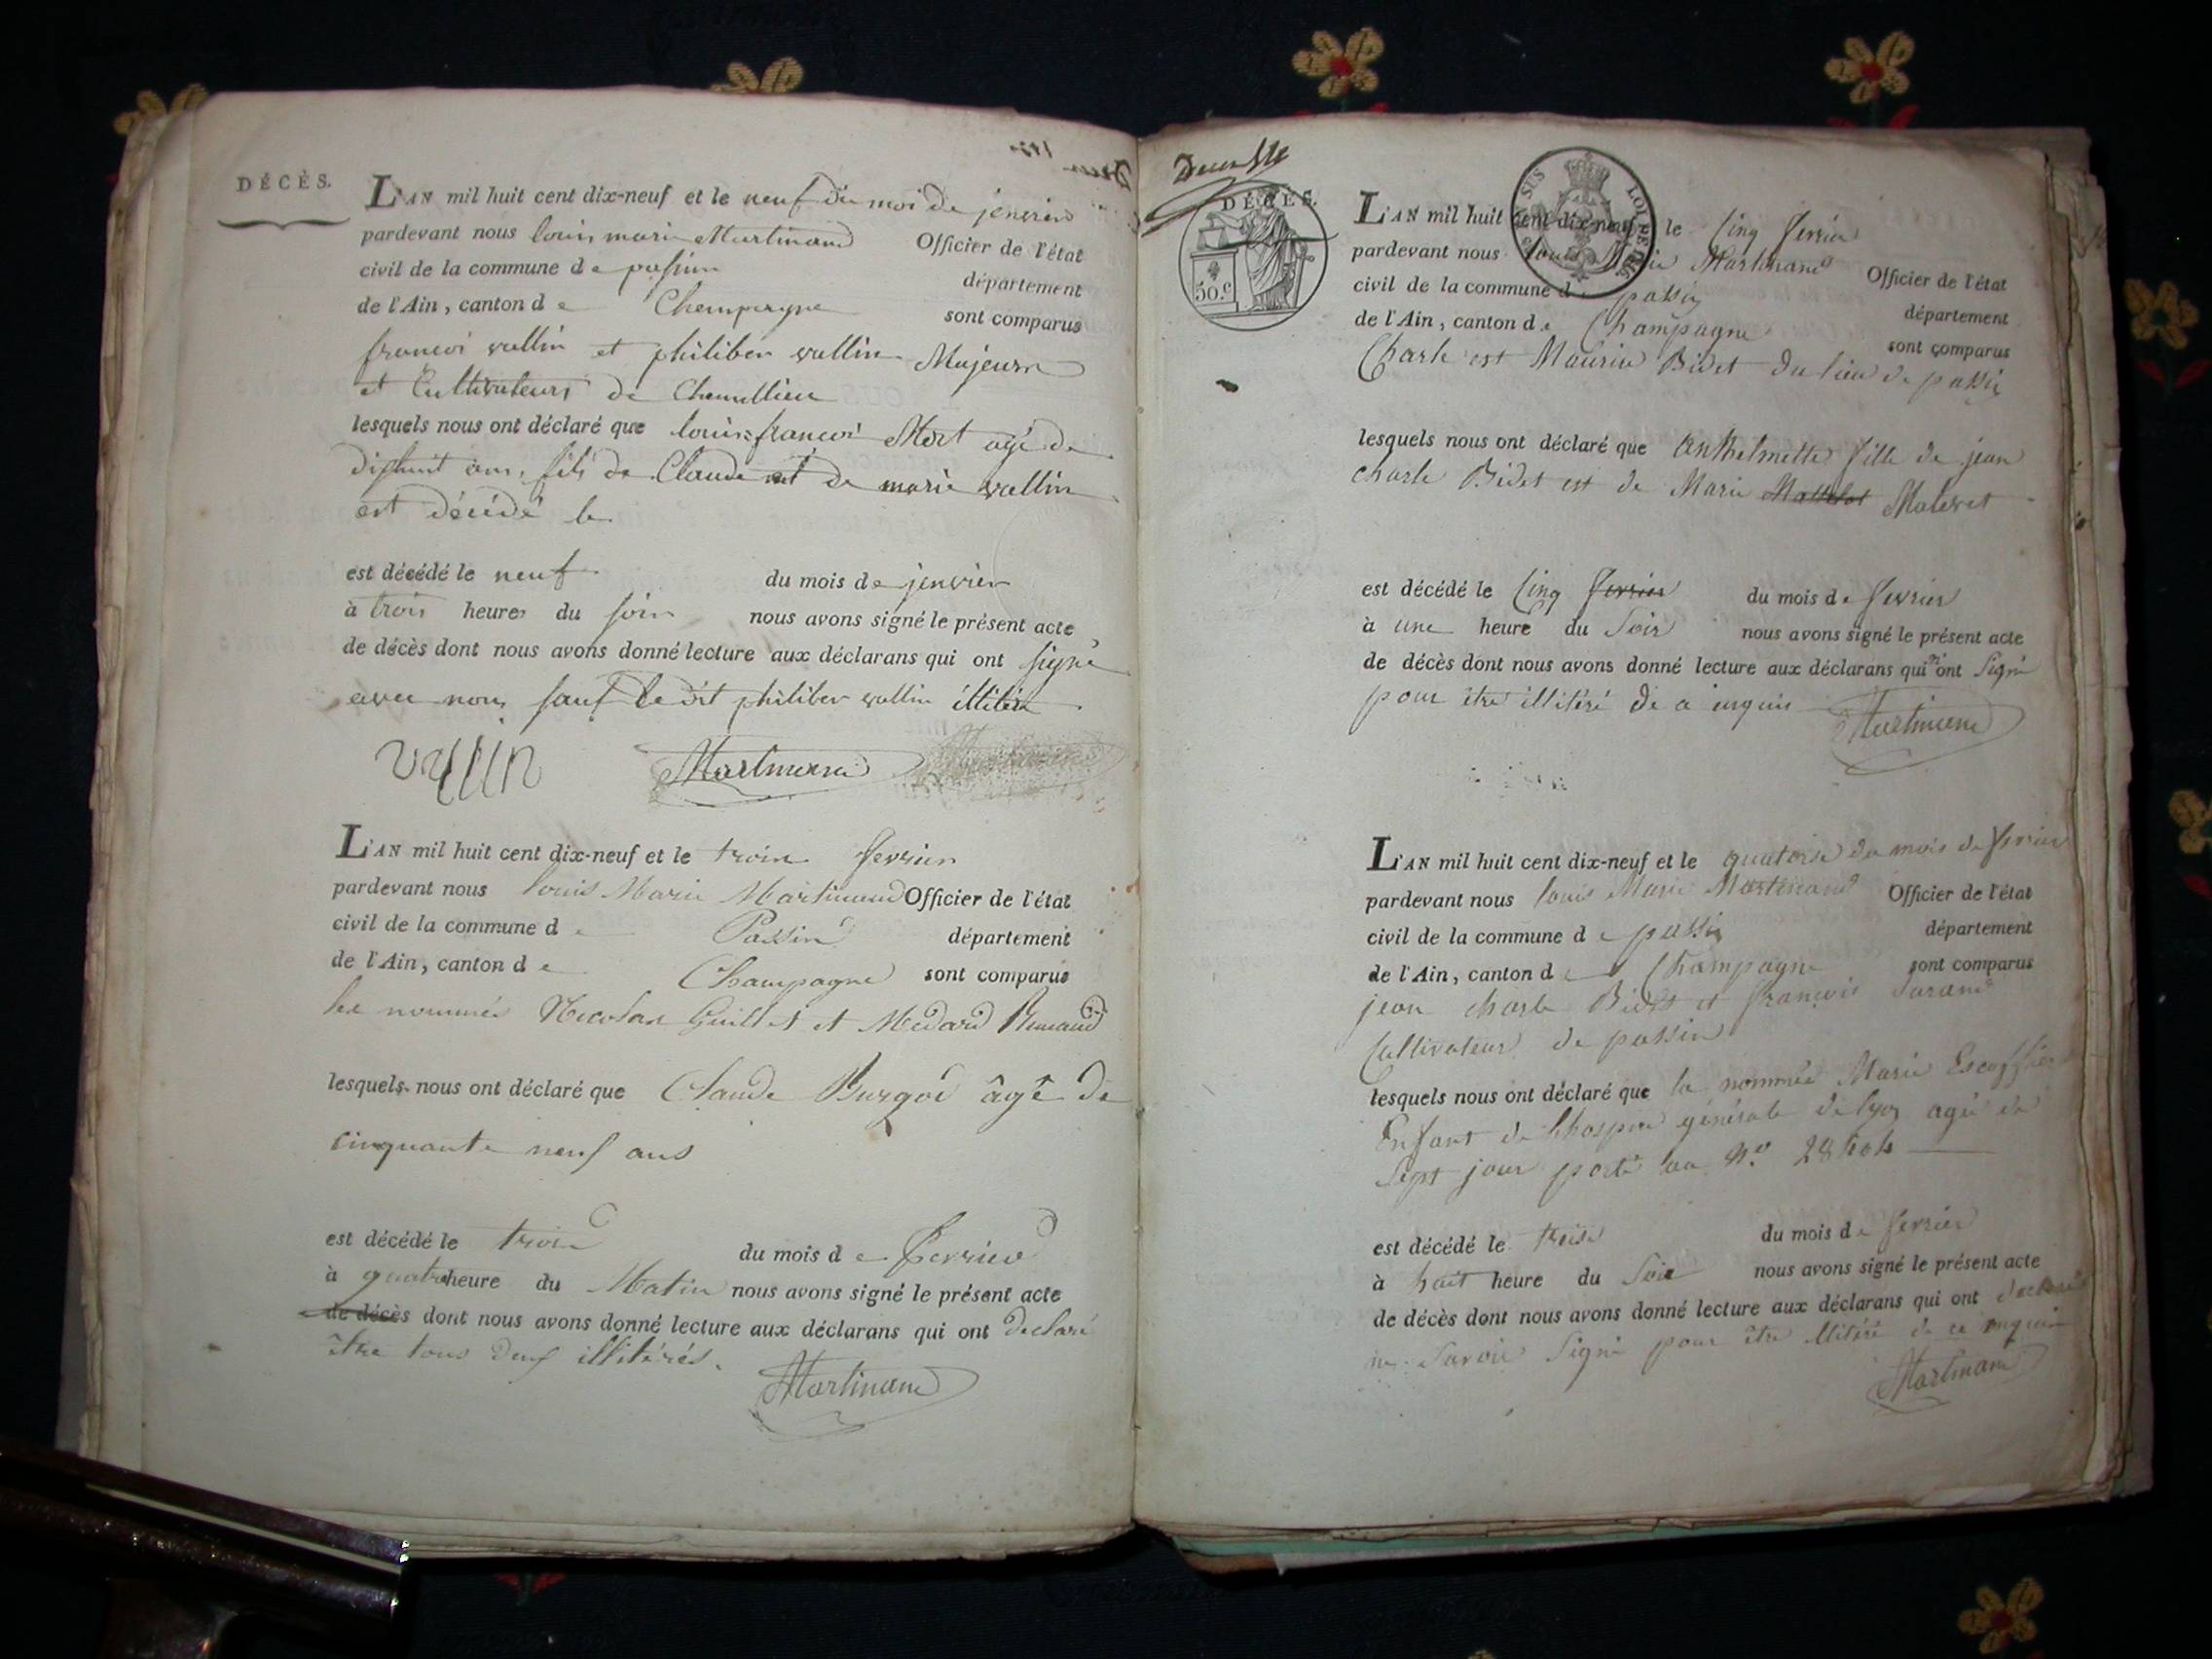 DÉCÈS.
L'AN mil huit cent dix-neuf et le neuf du moi de jenvier
pardevant nous louis marie Martinand Officier de l'état
civil de la commune de passin département
de l'Ain, canton de Champagne sont comparus
francoi vallin et philiber vallin Majeurs
et Cultivateurs de Chemillieu
lesquels nous ont déclaré que louis francoi Mort agé de
dishuit ans, fils de Claude et de marie vallin
est décédé le
est décédé le neuf du mois de jenvier
à trois heures du soir nous avons signé le présent acte
de décès dont nous avons donné lecture aux déclarans qui ont signé
avec nous sauf le dit philiber vallin illitéré
vallin Martinand
L'AN mil huit cent dix-neuf et le trois fevrier
pardevant nous louis Marie Martinand Officier de l'état
civil de la commune de Passin département
de l'Ain, canton de Champagne sont comparus
les nommés Nicolas Guillet et Médard
lesquels nous ont déclaré que Claude Burgod âgé de
cinquante neuf ans
est décédé le trois du mois de fevrier
à quatre heure du Matin nous avons signé le présent acte
de décès dont nous avons donné lecture aux déclarans qui ont déclaré
être tous deux illitérés.
Martinand
DÉCÈS.
50.c
LOI DE
L'AN mil huit cent dix-neuf le cinq fevrier
pardevant nous louis Marie Martinand Officier de l'état
civil de la commune de passin département
de l'Ain, canton de Champagne sont comparus
Charle est Maurice Bidet du lieu de passin
lesquels nous ont déclaré que Anthelmette fille de jean
charle Bidet est de Marie Mattelot Maleret
est décédé le cinq fevrier du mois de fevrier
à une heure du Soir nous avons signé le présent acte
de décès dont nous avons donné lecture aux déclarans qui n'ont Signé
pour être illitéré de a enquis
Martinand
L'AN mil huit cent dix-neuf et le quatorse du mois de fevrier
pardevant nous louis Marie Martinand Officier de l'état
civil de la commune de passin département
de l'Ain, canton de Champagne sont comparus
jean charle Bidet et françois
Cultivateur de passin
lesquels nous ont déclaré que la nommée Marie Escoffier
Enfant de lhospice générale de lyon agée de
Sept jour porté au N.o
est décédé le treise du mois de fevrier
à huit heure du Soir nous avons signé le présent acte
de décès dont nous avons donné lecture aux déclarans qui ont declaré
ne Savoir Signé pour être illitéré de ce enquis
Martinand